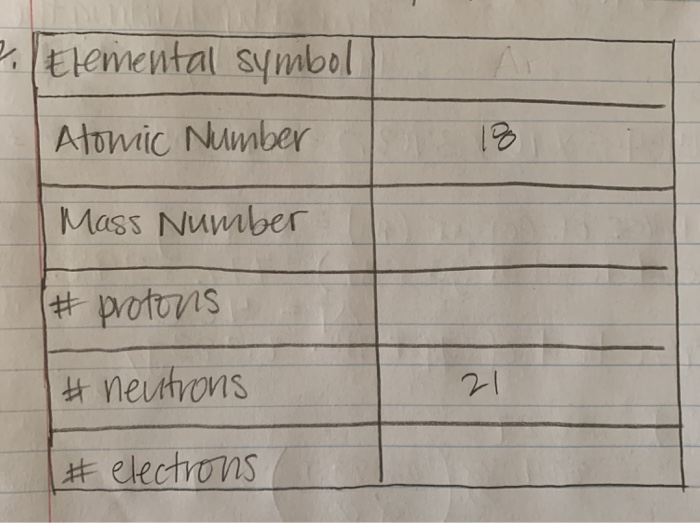 2. Elemental symbol Ar
Atomic Number 18
Mass Number
# protons
# neutrons 21
# electrons